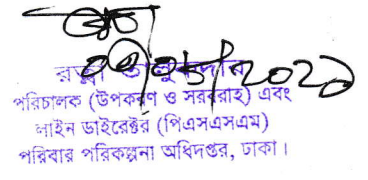 রত্না তালুকদার
পরিচালক (উপকরণ ও সরবরাহ) এবং
লাইন ডাইরেক্টর (পিএসএসএম)
পরিবার পরিকল্পনা অধিদপ্তর, ঢাকা।